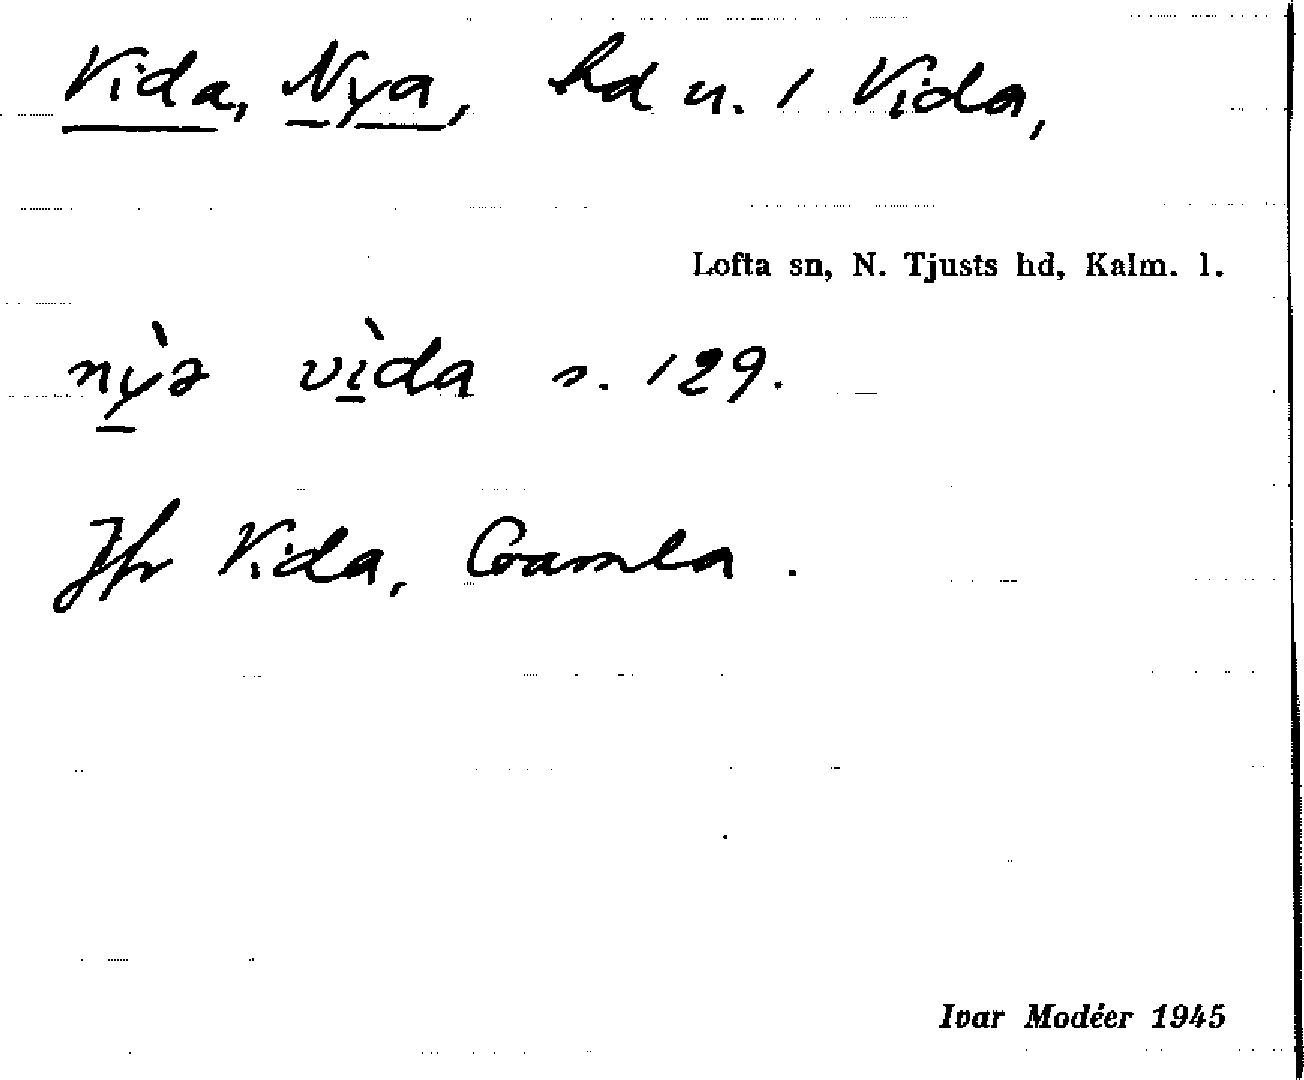 Vida, Nya, hd u. 1 Vida,
Lofta sn, N. Tjusts hd, Kalm. l.
nỳ̲ə vì̲da s. 129.
Jfr Vida, Gamla.
Ivar Modéer 1945